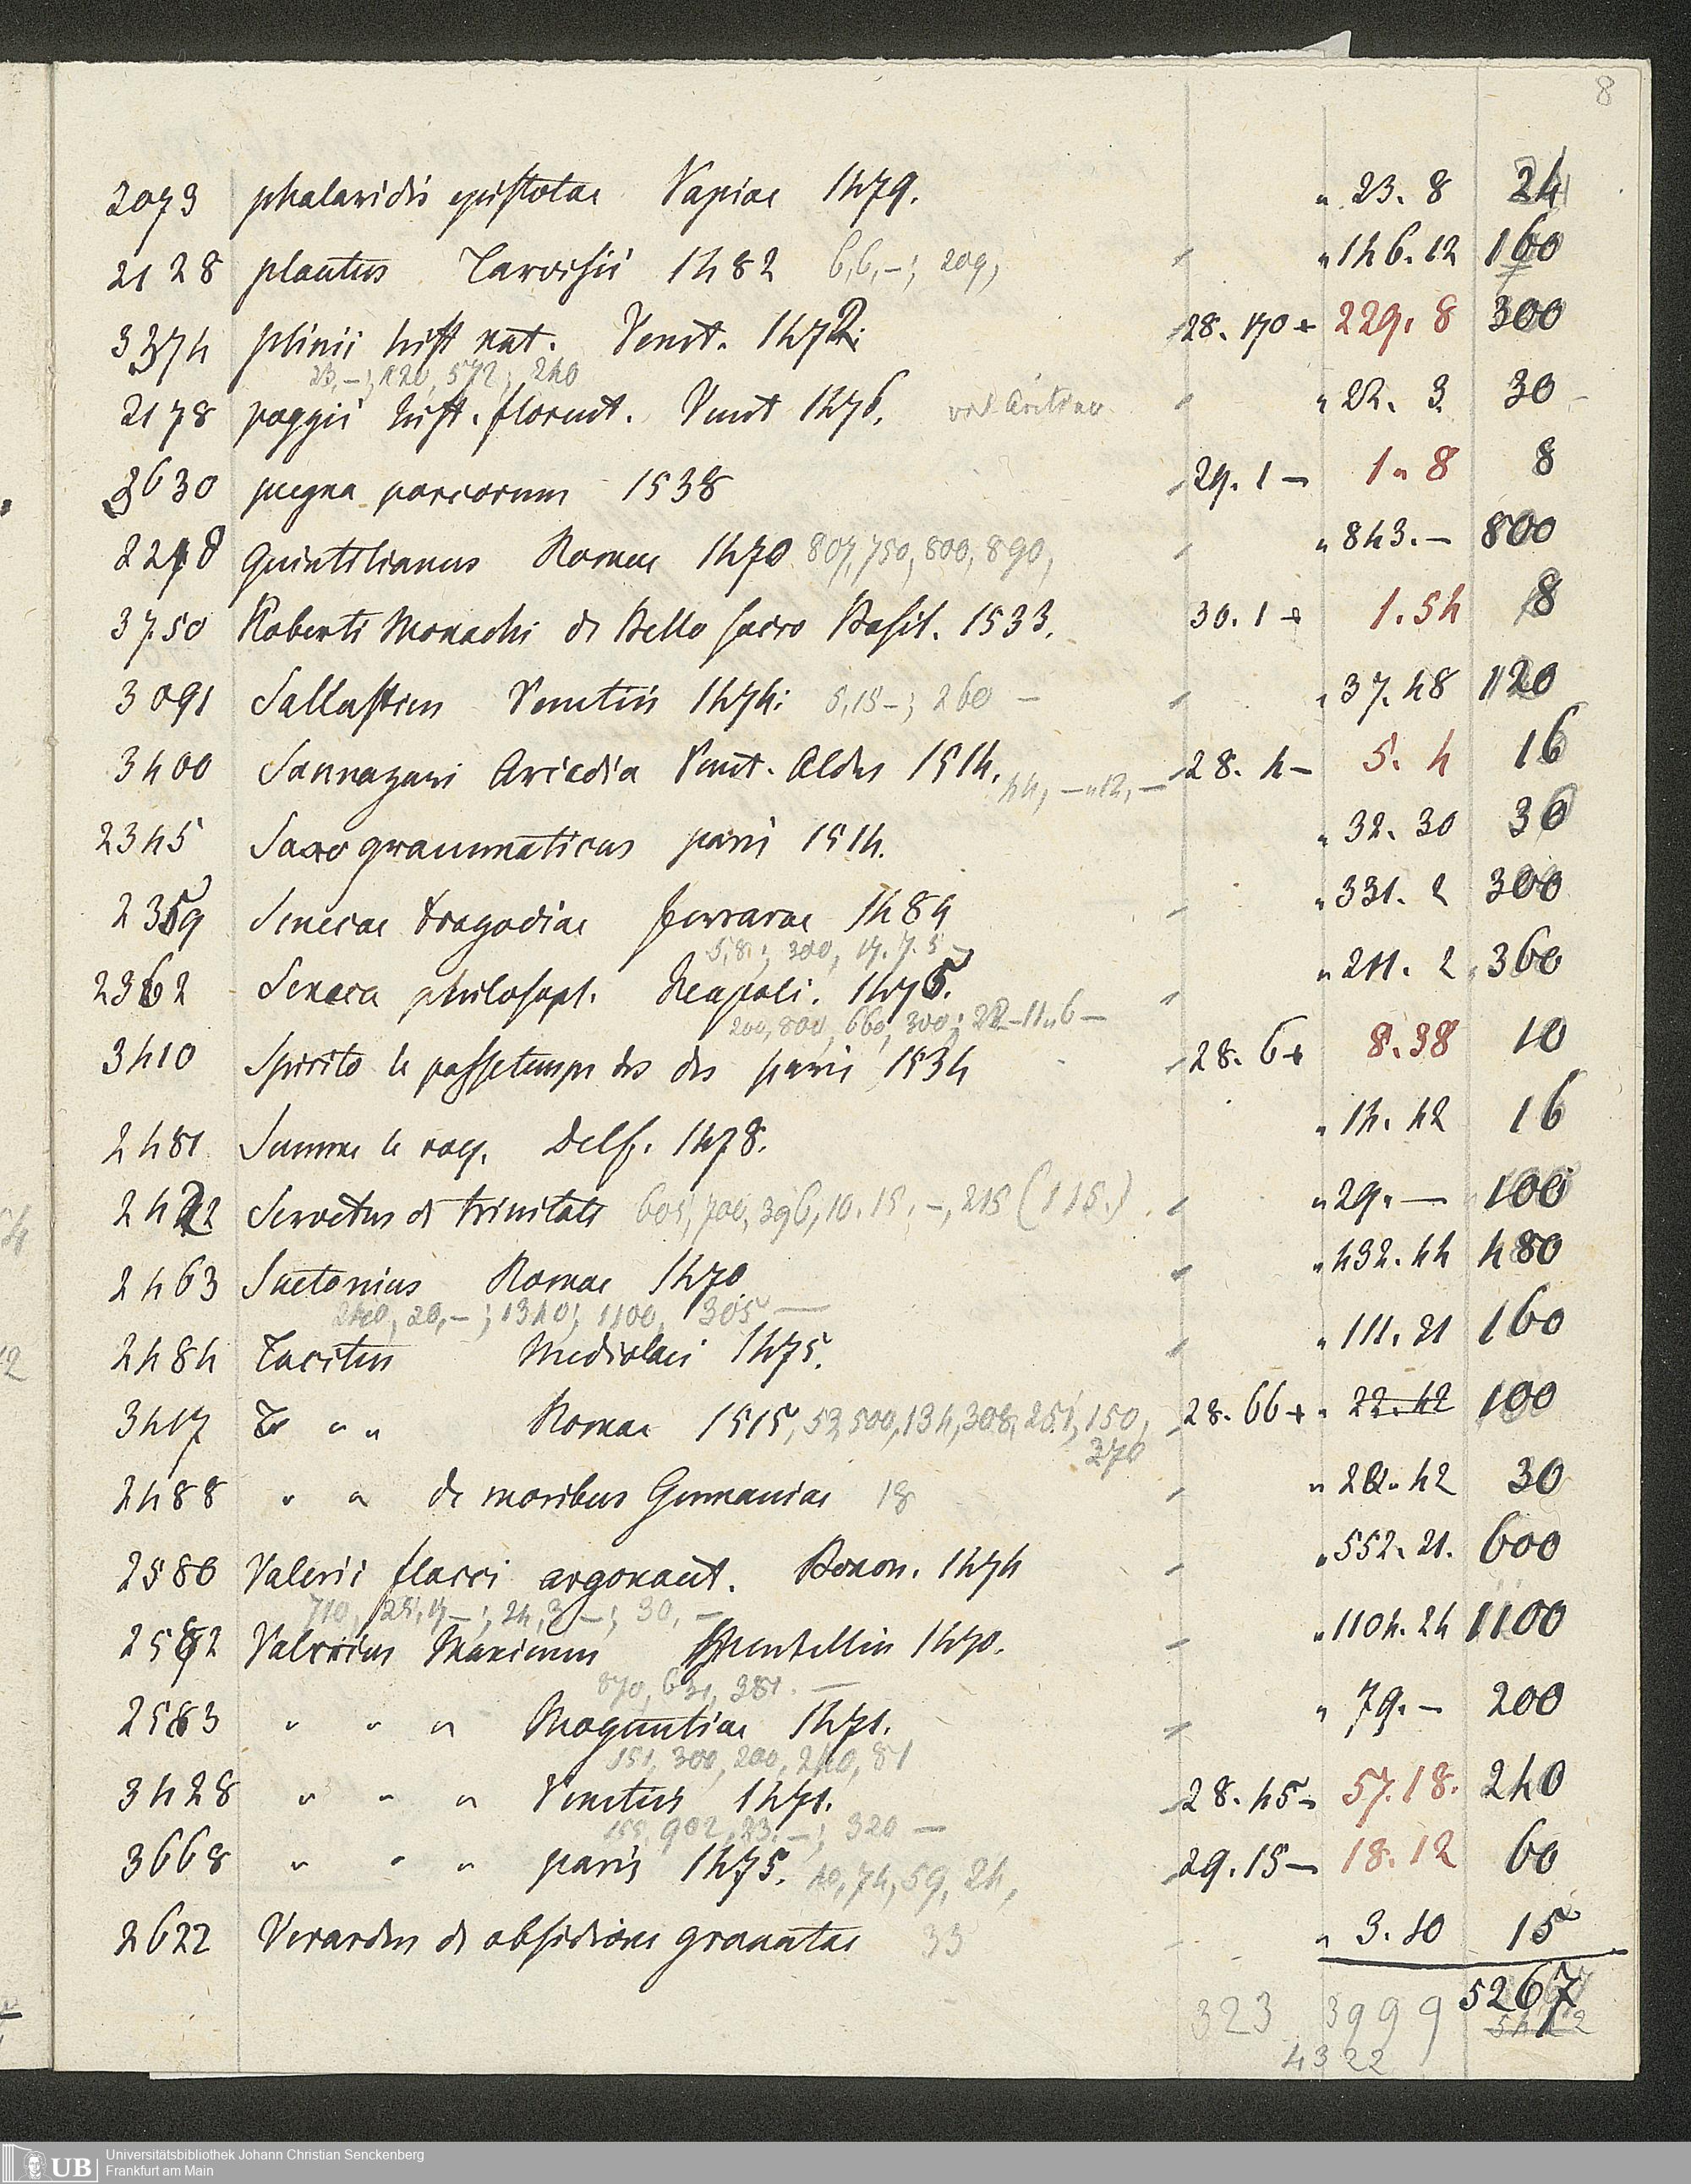 8
2073 phalaridis epistolae Papiae 1479. " 23. 8 24
2128 plautus Tarvisii 1482 6,6,–; 209, " 146. 12 160
3374 plinii hist nat. Venet. 1472. 28. 170+ 229. 8 300
23,–; 120, 572; 240
2178 poggii hist. florent. Venet 1476. " 22. 3. 30
3630 pugna porcorum 1538 29. 1 – 1 " 8 8
2218 Quintilianus Romae 1470 807, 750, 800, 890, " 843. – 800
3750 Roberti Monachi de Bello sacro Basil. 1533. 30. 1 + 1. 54 8
3091 Sallustius Venetiis 1474. 5,15–; 260 – " 37. 48 120
3400 Sannazari Arcadia Venet. Aldus 1514. 44, – "12, – 28. 4 – 5. 4 16
2345 Saxo grammaticus paris 1514. " 32. 30 30
2359 Senecae tragodiae ferrarae 1484 " 331. 2 300
5,8.; 300, 17. 7. 5
2362 Seneca philosoph. Neapoli. 1475. " 211. 2 360
200, 800, 660, 300; 22–11"6–
3410 Spirito le passetemps des des paris 1534 28. 6+ 8. 38 10
2481 Summe le roy. Delf. 1478. " 14. 42 16
2422 Servetus de trinitate 605, 700, 396, 10. 15. –, 215 (115.) " 29. – 100
2463 Suetonius Romae 1470 " 432. 44 480
240, 20, –; 1340; 1100, 305 –
2484 Tacitus Mediolani 1475. " 111. 21 160
3417 " " Romae 1515, 53, 500, 134, 308, 251, 150, 28. 66+ " 22. 42 100
370
2488 " " de moribus Germaniae 18 " 22. 42 30
2580 Valerii flacci argonaut. Bonon. 1474 " 552. 21. 600
710, 25, 17 –; 24, 3 –; 30, –
2582 Valerius Maximus 1470. " 1104. 24 1100
870, 631, 381. –
2583 " " " Moguntiae 1471. " 79. – 200
151, 300, 200, 240, 81
3428 " " " Venetiis 1471. 28. 45 – 57. 18. 240
155, 902, 23. –; 320 –
3668 " " " paris 1475. 40, 74, 59, 24, 29. 15 – 18. 12 60
2622 Verardus de obsidione granatae 33 " 3. 10 15
5267
323 3999
4322
UB Universitätsbibliothek Johann Christian Senckenberg
Frankfurt am Main